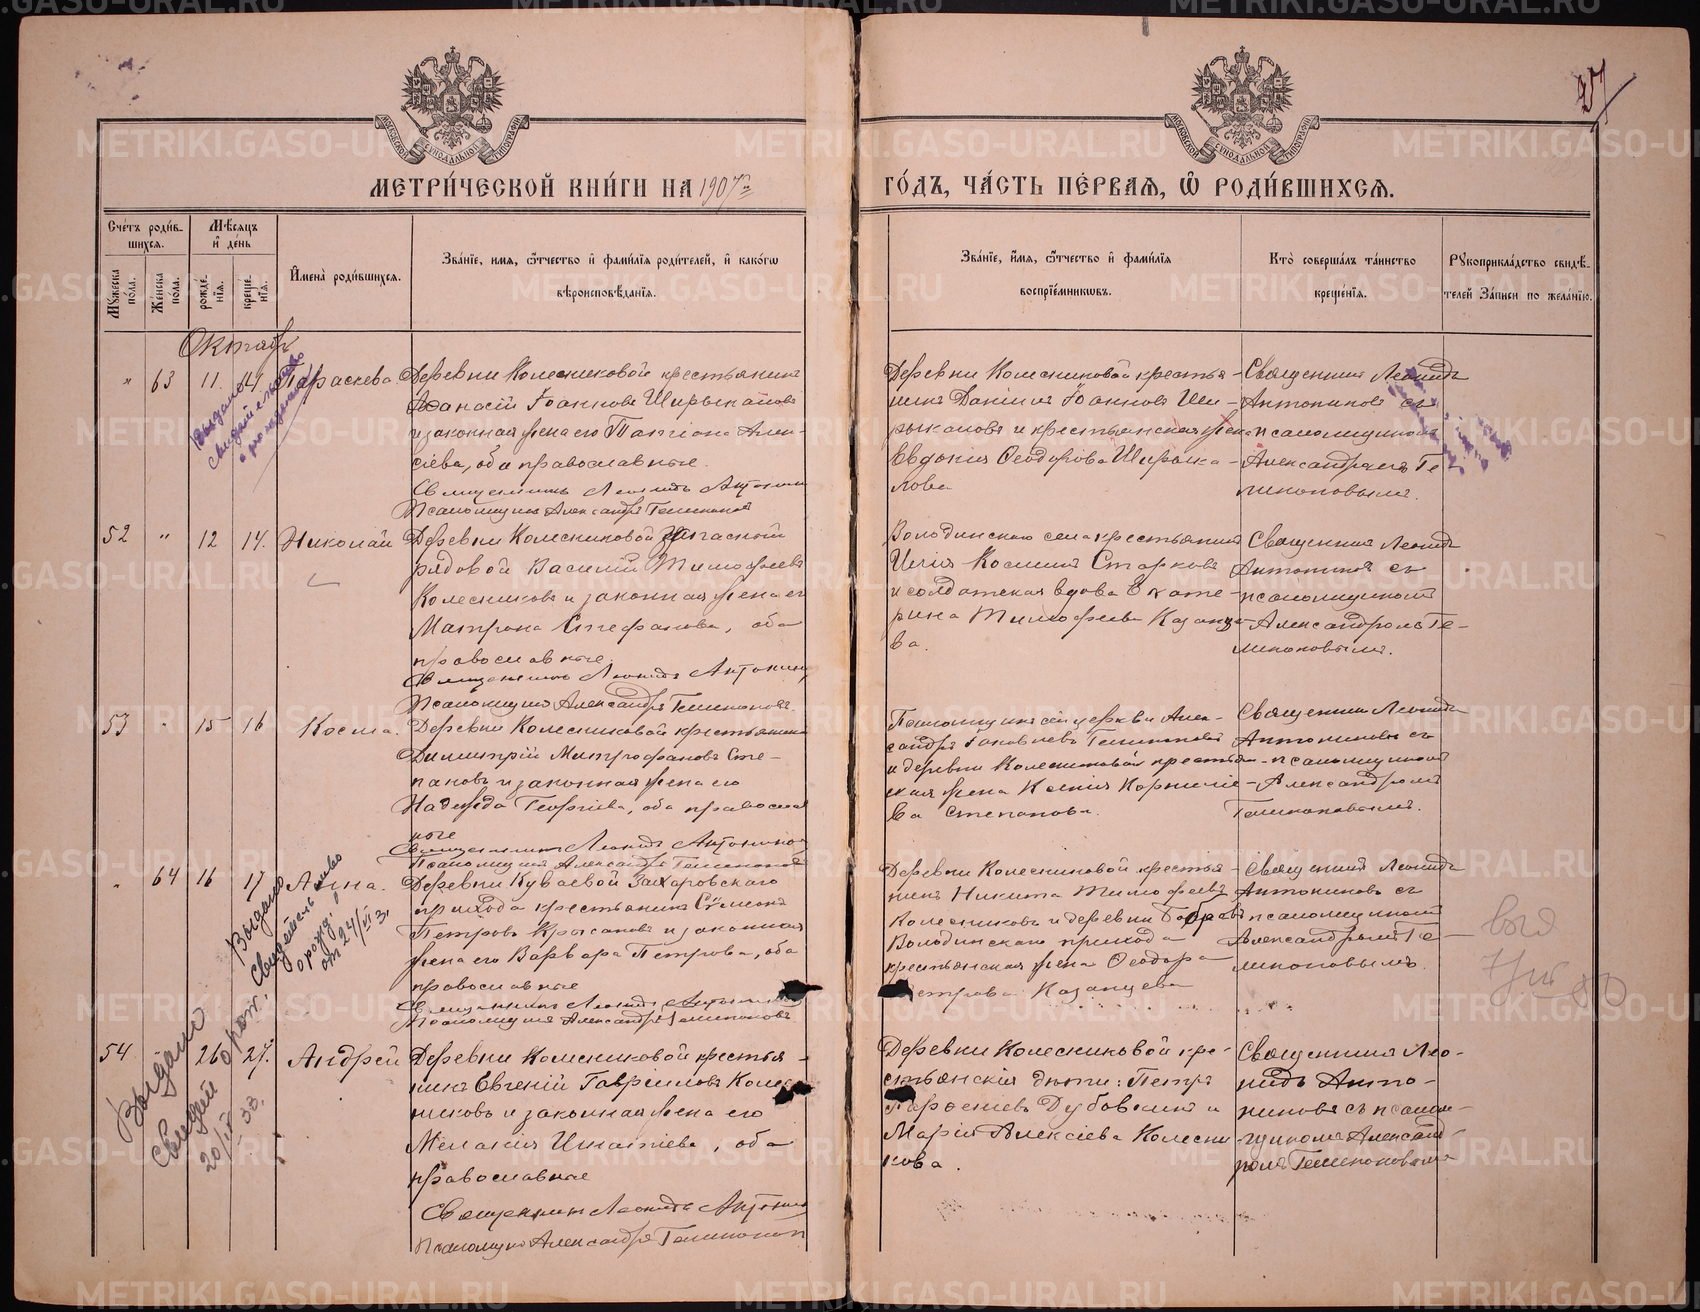 МЕТРИ́ЧЕСКОЙ КНИ́ГИ НА 1907 г.
ГО́ДЪ, ЧА́СТЬ ПЕ́РВАѦ, Ѡ҆ РОДИ́ВШИХСѦ.
Сче́тъ роди́в-
шихсѧ.
Мꙋ́жеска по́ла.
Же́нска по́ла.
Мѣ́сѧцъ
и҆ де́нь
рожде́-
нїѧ.
креще́-
нїѧ.
И҆мена̀ роди́вшихсѧ.
Зва́нїе, и҆мѧ, ѻ҆́тчество и҆ фами́лїѧ роди́телей, и҆ како́гѡ
вѣроисповѣ́данїѧ.
Зва́нїе, и҆́мѧ, ѻ҆́тчество и҆ фами́лїѧ
воспрїе́мникѡвъ.
Кто̀ соверша́лъ та́инство
креще́нїѧ.
Рꙋкоприкла́дство свидѣ́-
телей За́писи по жела́нїю.
Октябрь
" 63 11. 14. Параскева.
Деревни Колесниковой крестьянинъ
Аѳанасій Іоанновъ Ширыкаловъ
и законная жена его Алек-
сіева, оба православные.
Священникъ Леонидъ Антонинов
Псаломщикъ Александръ
Деревни Колесниковой крестья-
нинъ Даніилъ Іоанновъ Ши-
рыкаловъ и крестьянская жена
Евдокія Ѳеодорова Ширыка-
лова
Священникъ Леонидъ
Антониновъ съ
псаломщикомъ
Александромъ
Выдано
свидетельство
о рождении
52 " 12 14. Николай
Деревни Колесниковой запасный
рядовой Василій Тимоѳеевъ
Колесниковъ и законная жена его
Матрона Стефанова, оба
православные.
Священникъ Леонидъ Антонинов
Псаломщикъ Александръ
Володинскаго села крестьянинъ
Илія Косминъ Старковъ
и солдатская вдова Екате-
рина Тимоѳеева Казанце-
ва.
Священникъ Леонидъ
Антониновъ съ
псаломщикомъ
Александромъ
53 " 15 16 Косма.
Деревни Колесниковой крестьянинъ
Димитрій Митрофановъ Сте-
пановъ и законная жена его
Надежда Георгіева, оба православ
ные
Священникъ Леонидъ Антонинов
Псаломщикъ Александръ
Псаломщикъ сей церкви Алек-
сандръ Іаковлевъ
и деревни Колесниковой крестьян-
ская жена Ксенія Корниліе-
ва Степанова.
Священникъ Леонидъ
Антониновъ съ
псаломщикомъ
Александромъ
" 64 16 17 Анна.
Деревни Куваевой Захаровскаго
прихода крестьянинъ Сѷмеонъ
Петровъ Крысановъ и законная
жена его Варвара Петрова, оба
православные
Священникъ Леонидъ Антонинов
Псаломщикъ Александръ
Деревни Колесниковой крестья-
нинъ Никита Тимоѳеевъ
Колесниковъ и деревни
Володинскаго прихода
крестьянская жена Ѳеодора
Петрова Казанцева
Священникъ Леонидъ
Антониновъ съ
псаломщикомъ
Александромъ
Выдано
свидетельство
о рожд.
от 24/VI 3
54 " 26 27. Андрей
Деревни Колесниковой крестья-
нинъ Евгеній Гавріиловъ Колес
никовъ и законная жена его
Меланія Игнатіева, оба
православные
Священникъ Леонидъ Антонинов
Псаломщикъ Александръ
Деревни Колесниковой кре-
стьянскія дѣти: Петръ
Парѳеніевъ Дубовкинъ и
Марія Алексіева Колесни-
кова.
Священникъ Лео-
нидъ Анто-
ниновъ съ псалом-
щикомъ Александ-
ромъ
Выдано
свидет. о рож.
20/IV 33.
METRIKI.GASO-URAL.RU